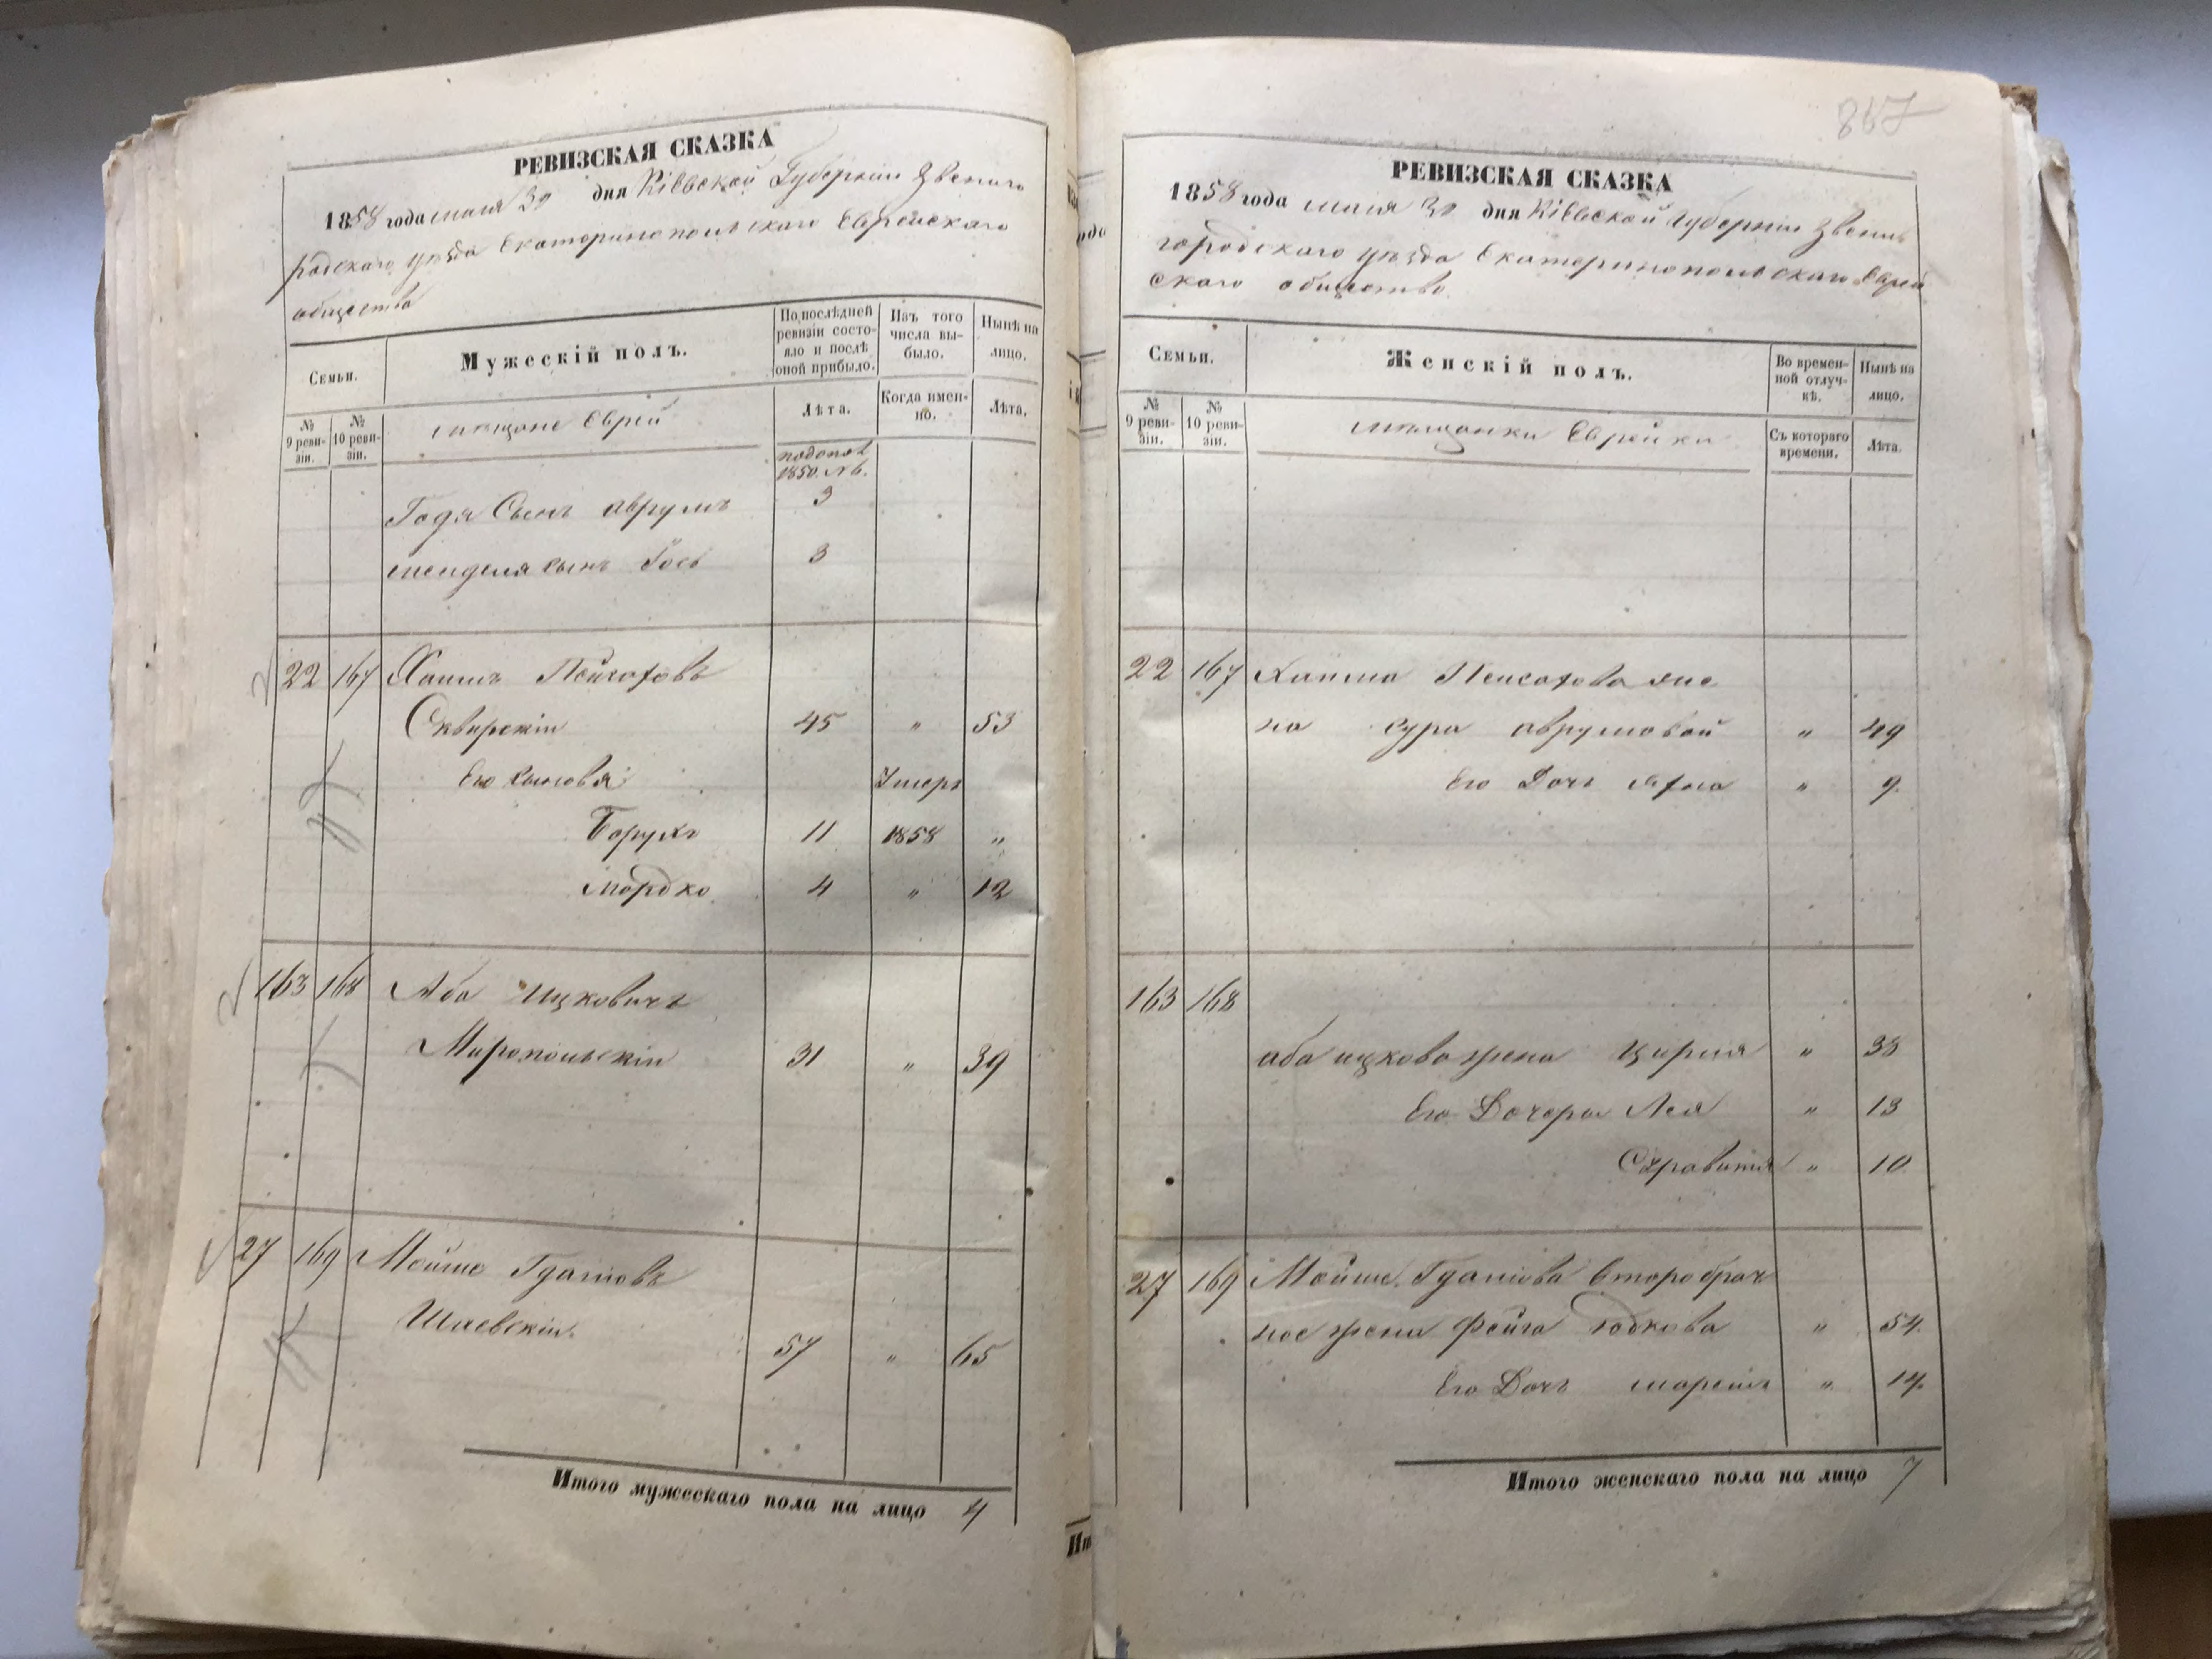 РЕВИЗСКАЯ СКАЗКА
1858 года мая 30 дня Кіевской Губерніи Звениго
родскаго уѣзда Екатеринопольскаго Еврейскаго
общества
Семьи.
Мужескій полъ.
По послѣдней ревизіи состояло и послѣ оной прибыло.
Изъ того числа выбыло.
Нынѣ на лицо.
№ 9 ревизіи.
№ 10 ревизіи.
мещане Еврей
Лѣта.
Когда именно.
Лѣта.
1850. №.
Годя Сынъ Аврумъ 3
менделя сынъ Іось 3
22 167 Хаимъ Пейсаховъ
Сквирскій 45 " 53
Его сыновья Умеръ
Борухъ 11 1858 "
Мордко 4 " 12
163 168 Аба Ицковичъ
Миропольскій 31 " 39
27 169 Мойше Гдаліовъ
Шаевскій 57 " 65
Итого мужескаго пола на лицо 4
867
РЕВИЗСКАЯ СКАЗКА
1858 года мая 30 дня Кіевской Губерніи Звени
городскаго уѣзда Екатеринопольскаго Еврей
скаго общество
Семьи.
Женскій полъ.
Во временной отлучкѣ.
Нынѣ на лицо.
№ 9 ревизіи.
№ 10 ревизіи.
мещанки Еврейки
Съ котораго времени.
Лѣта.
22 167 Хаима Пейсахова же
на сура Аврумовой " 49
Его Дочь " 9
163 168
аба ицкова жена Цирля " 38
Его Дочери Лея " 13
" 10
27 169 Мойше Гдаліова второбрач
ное жена Фейга Юдкова " 54
Его Дочь " 14
Итого женскаго пола на лицо 7